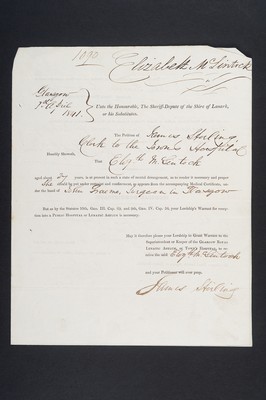 1890
Elizabeth McLintock
Glasgow
7th April
1841.
Unto the Honourable, The Sheriff-Depute of the Shire of Lanark,
or his Substitutes.
The Petition of James Stirling,
Clerk to the Town's Hospital
Humbly Sheweth,
That Elizth McLintock
aged 37 years, is at present in such a state of mental derangement, as to render it necessary and proper
for her proper treatment and confinement, as appears from the accompanying Medical Certificate, under
the hand of John Surgeon in Glasgow
But as by the Statutes 55th, Geo. III. Cap. 69, and 9th, Geo. IV. Cap. 34, your Lordship's Warrant for entry
into a Public Hospital or Lunatic Asylum is necessary.
May it therefore please your Lordship to Grant Warrant to the
Superintendent or Keeper of the Glasgow Royal
Lunatic Asylum, or Town's Hospital, to receive
the said Elizth McLintock
and your Petitioner will ever pray.
James Stirling